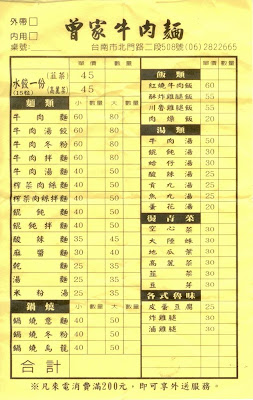 外帶□
內用□
桌號:
曾家牛肉麵
台南市北門路二段508號(06)2822665
單價 數量
水餃一份 (15粒) (韮菜) 45
(高麗菜) 45
麵類 小 數量 大 數量
牛肉麵 60 80
牛肉湯餃 60 80
牛肉冬粉 60 80
牛肉拌麵 60 80
牛肉湯麵 40 50
榨菜肉絲麵 40 50
榨菜肉絲拌麵 40 50
餛飩麵 40 50
餛飩拌麵 40 50
酸辣麵 35 45
麻醬麵 30 40
乾麵
湯麵
米粉湯
鍋燒 小 數量 大 數量
鍋燒意麵 40 50
鍋燒冬粉 40 50
鍋燒烏龍 40 50
合計
單價 數量
飯類
紅燒牛肉飯 60
酥炸雞腿飯 55
川魯雞腿飯 55
肉燥飯
湯類
牛肉湯 50
餛飩湯 30
蛤仔湯 30
酸辣湯 25
貢丸湯 25
魚丸湯 25
蛋花湯 20
燙青菜
空心菜 30
大陸妹 30
地瓜菜 30
高麗菜 30
韮菜 30
豆芽 30
各式魯味
皮蛋豆腐 25
炸雞腿
滷雞腿
※凡來電消費滿200元,即可享外送服務。